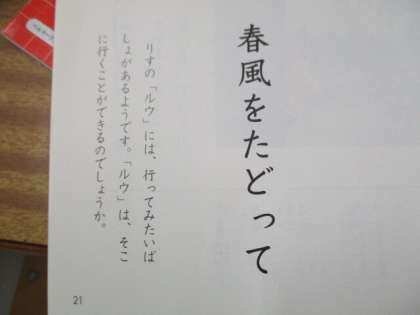 春風をたどって
りすの「ルウ」には、行ってみたいば
しょがあるようです。「ルウ」は、そこ
に行くことができるのでしょうか。
21